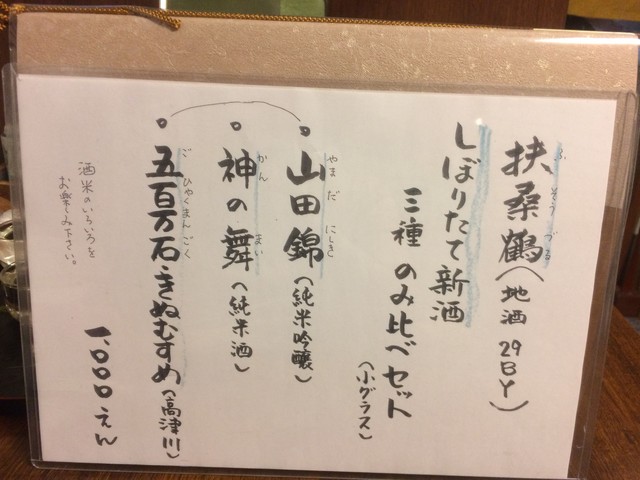 扶桑鶴（地酒 29BY）
ふ そう づる
しぼりたて新酒
三種 のみ比べセット
（小グラス）
。山田錦（純米吟醸）
やま だ にしき
。神の舞（純米酒）
かん まい
。五百万石きぬむすめ（高津川）
ご ひゃくまんごく
酒米のいろいろを
お楽しみ下さい。
一、〇〇〇えん